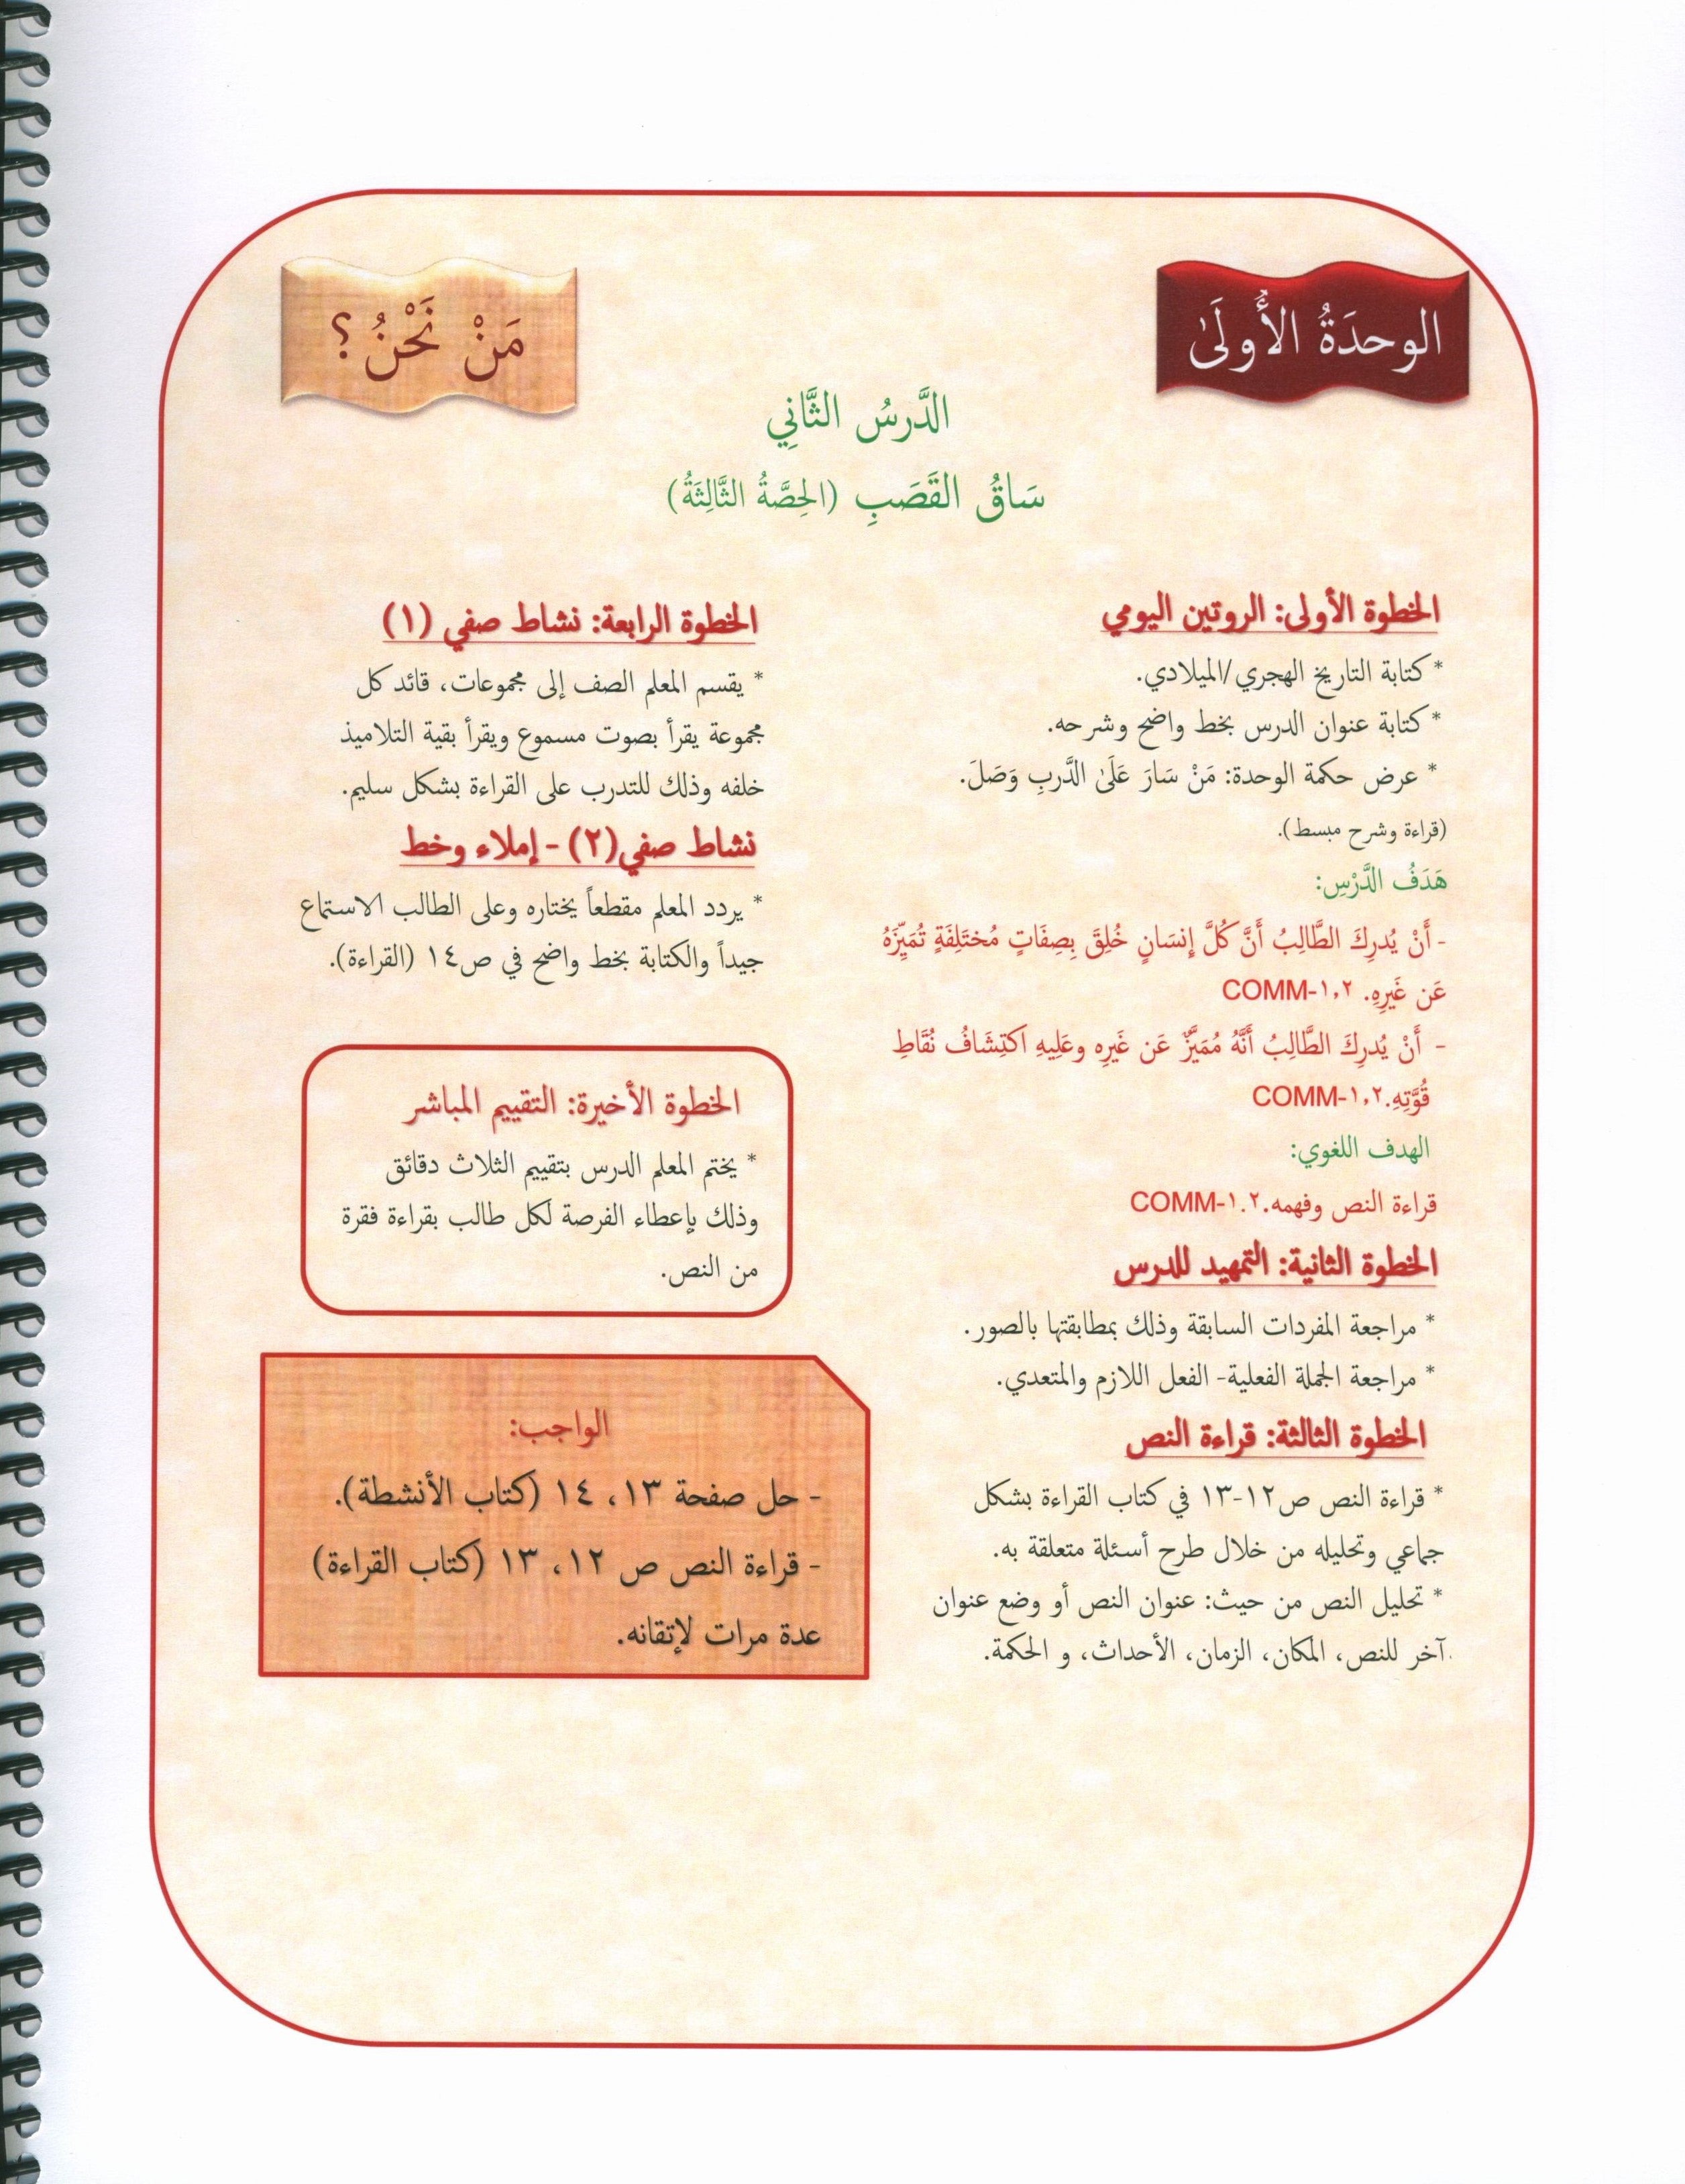 الوحدَةُ الأُولَىٰ
مَنْ نَحْنُ؟
الدَّرسُ الثَّانِي
سَاقُ القَصَبِ (الحِصَّةُ الثَّالِثَةُ)
الخطوة الأولى: الروتين اليومي
* كتابة التاريخ الهجري/الميلادي.
* كتابة عنوان الدرس بخط واضح وشرحه.
* عرض حكمة الوحدة: مَنْ سَارَ عَلَىٰ الدَّربِ وَصَلَ.
(قراءة وشرح مبسط).
هَدَفُ الدَّرْسِ:
- أَنْ يُدرِكَ الطَّالِبُ أَنَّ كُلَّ إِنسَانٍ خُلِقَ بِصِفَاتٍ مُختَلِفَةٍ تُمَيِّزَهُ
عَن غَيرِهِ. COMM-١,٢
- أَنْ يُدرِكَ الطَّالِبُ أَنَّهُ مُمَيَّزٌ عَن غَيرِه وعَلِيهِ اكتِشَافُ نُقَاطِ
قُوَّتِهِ.COMM-١,٢
الهدف اللغوي:
قراءة النص وفهمه.COMM-١.٢
الخطوة الثانية: التمهيد للدرس
* مراجعة المفردات السابقة وذلك بمطابقتها بالصور.
* مراجعة الجملة الفعلية- الفعل اللازم والمتعدي.
الخطوة الثالثة: قراءة النص
* قراءة النص ص١٢-١٣ في كتاب القراءة بشكل
جماعي وتحليله من خلال طرح أسئلة متعلقة به.
* تحليل النص من حيث: عنوان النص أو وضع عنوان
آخر للنص، المكان، الزمان، الأحداث، و الحكمة.
الخطوة الرابعة: نشاط صفي (١)
* يقسم المعلم الصف إلى مجموعات، قائد كل
مجموعة يقرأ بصوت مسموع ويقرأ بقية التلاميذ
خلفه وذلك للتدرب على القراءة بشكل سليم.
نشاط صفي(٢) - إملاء وخط
* يردد المعلم مقطعاً يختاره وعلى الطالب الاستماع
جيداً والكتابة بخط واضح في ص١٤ (القراءة).
الخطوة الأخيرة: التقييم المباشر
* يختم المعلم الدرس بتقييم الثلاث دقائق
وذلك بإعطاء الفرصة لكل طالب بقراءة فقرة
من النص.
الواجب:
- حل صفحة ١٣، ١٤ (كتاب الأنشطة).
- قراءة النص ص ١٢، ١٣ (كتاب القراءة)
عدة مرات لإتقانه.